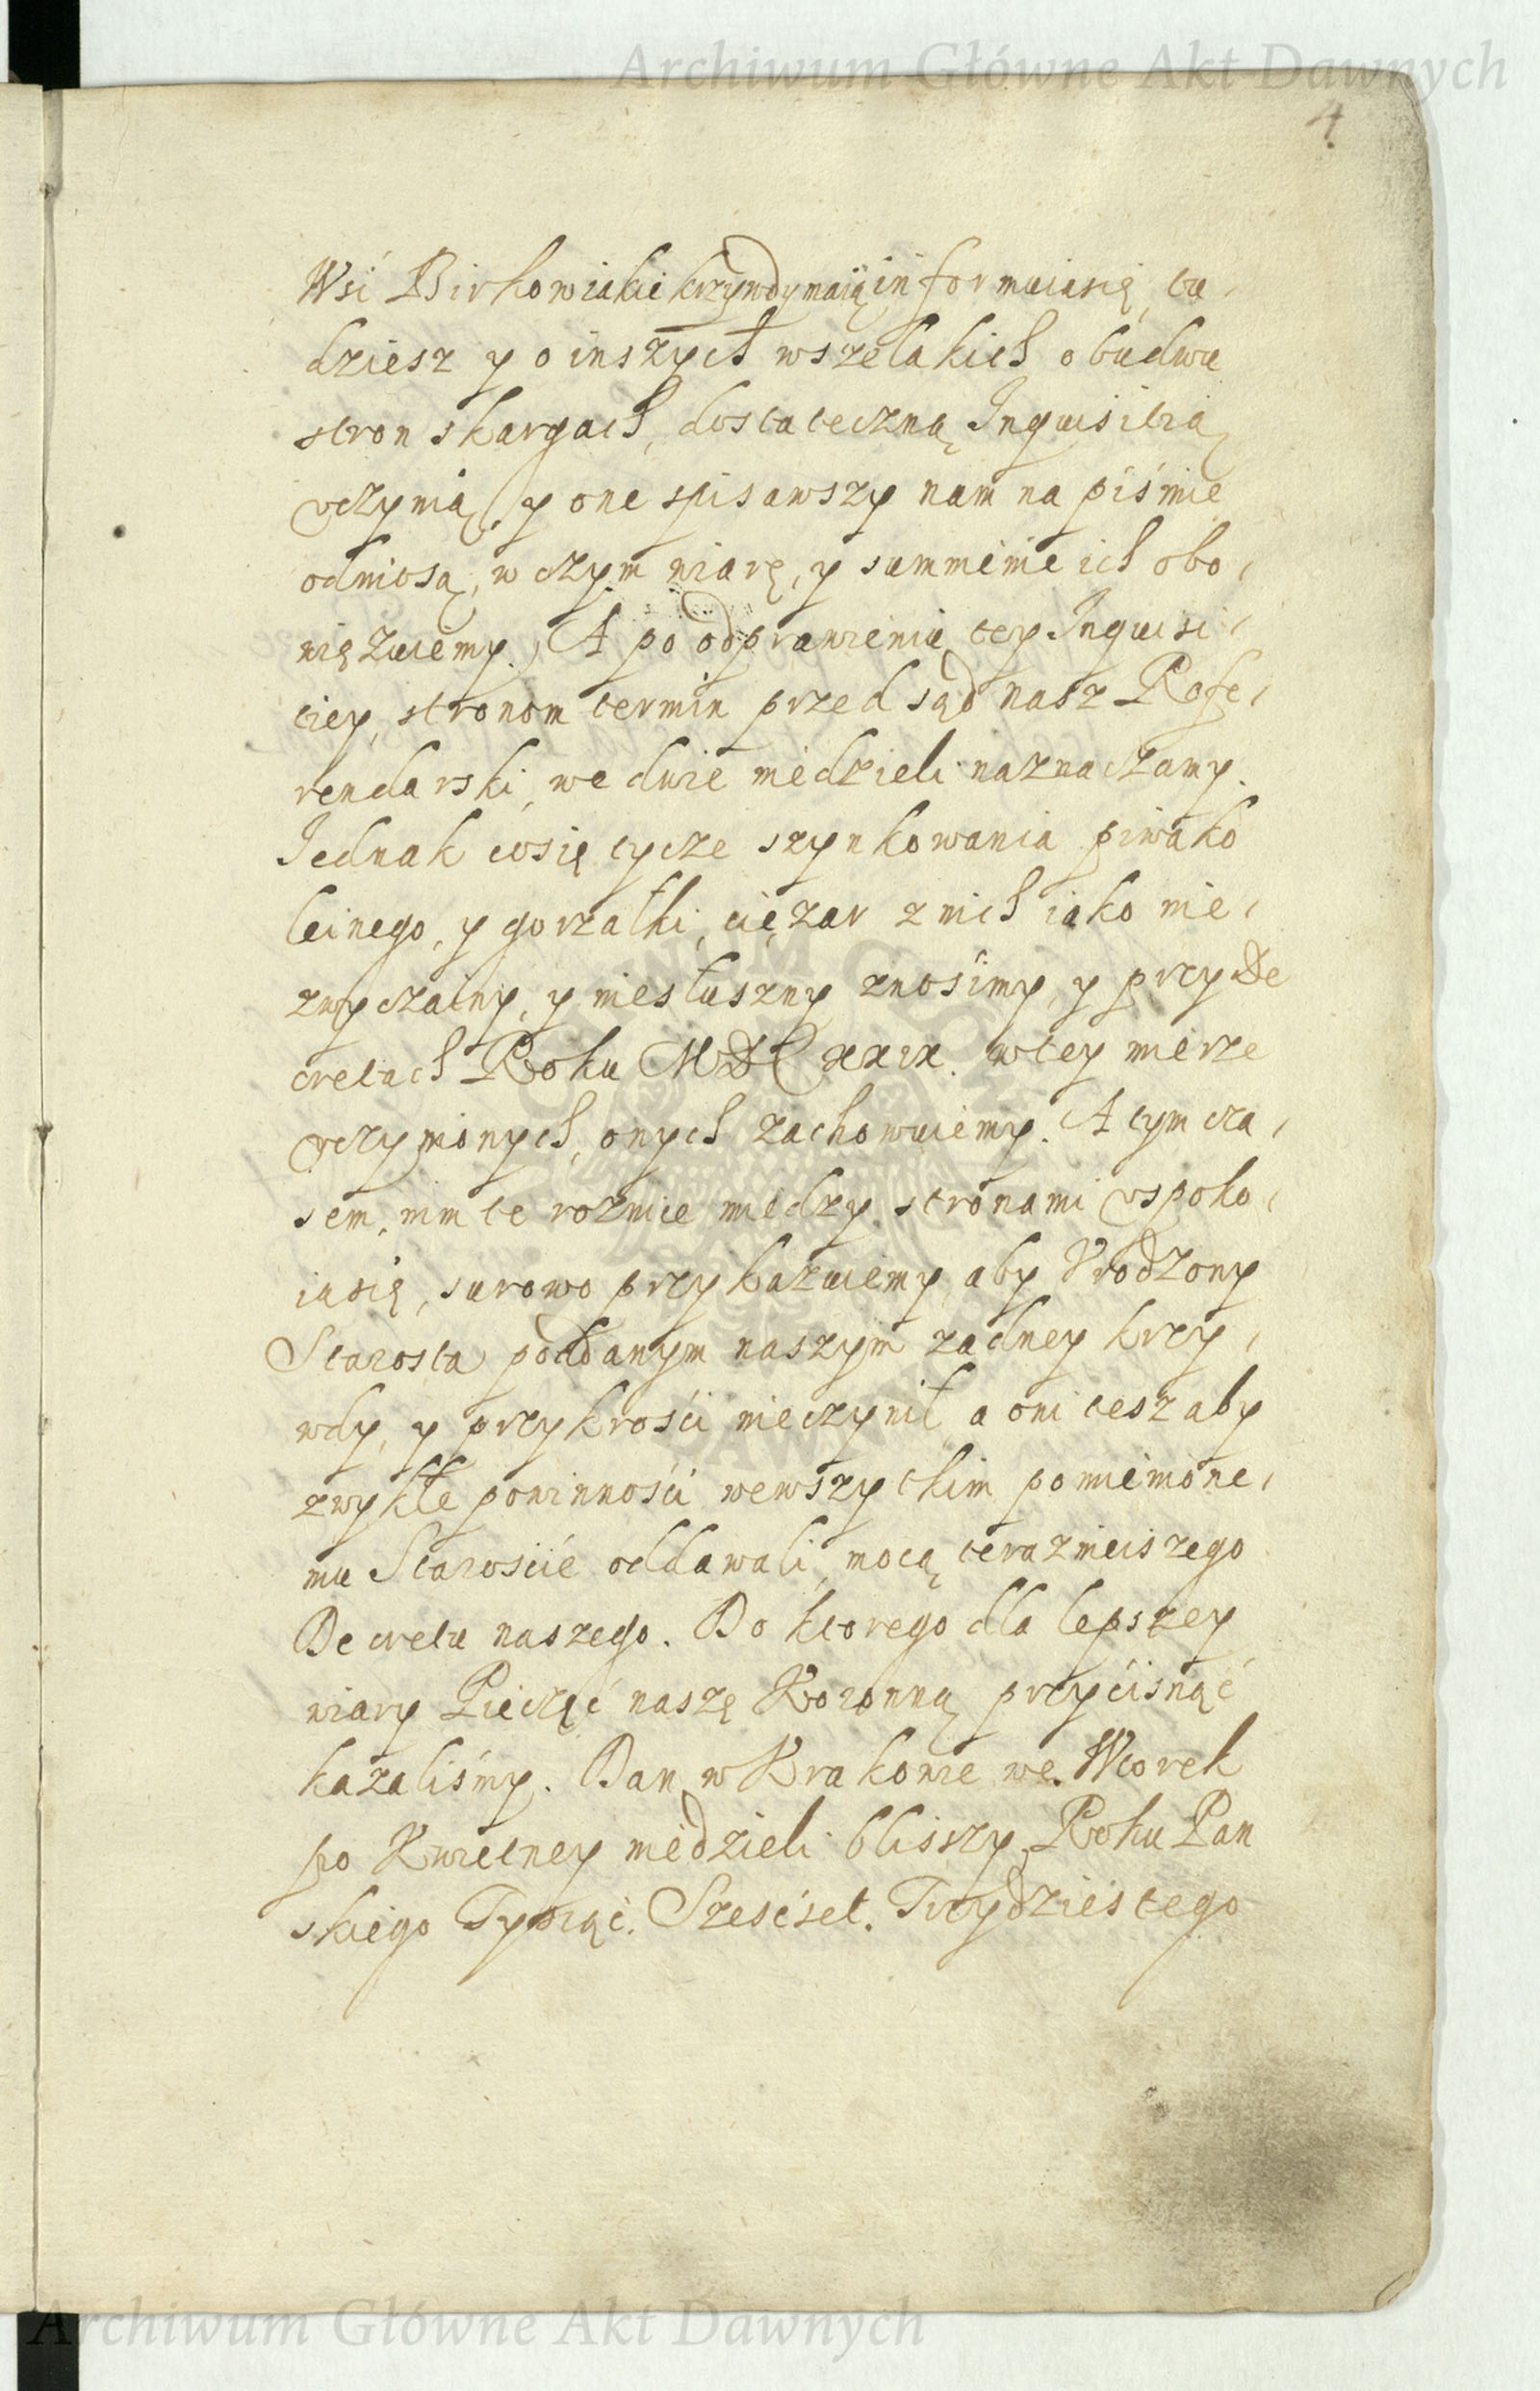 Archiwum Główne Akt Dawnych
4
Wsi Birkowiakie krzywdy maią informuiasię, ta-
dziesz y o inszych wszelakich obudwu
stron skargach, dostateczną Inquisitią
vczynią, y one spisawszy nam na piśmie
odniosą, w czym wiarę, y sumnienie ich obo-
więzuiemy. A po odprawieniu tey Inquisi-
tiey, stronom termin przed sąd nasz Refe-
rendarski, we dwie niedzieli naznaczamy.
Iednak cosię tycze szynkowania piwa ko
leinego, y gorzałki, ciężar z nich iako nie-
zwyczainy, y niesłuszny znosimy, y przy De
cretach Roku MDCxxix. wtey mierze
vczynionych, onych zachowuiemy. A tym cza-
sem, nim te roznice miedzy stronami vspoko-
iasię, surowo przykazuiemy, aby Vrodzony
Starosta poddanym naszym zadney krzy-
wdy, y przykrości nieczynił, a oni tesz aby
zwykłe powinności wewszytkim pomienione-
mu Starosćie oddawali, mocą teraznieiszego
Decretu naszego. Do ktorego dla lepszey
wiary Pieczęć naszę Koronną przyćisnąć
kazaliśmy. Dan w Krakowie we Wtorek
po Kwietney niedzieli bliszszy, Roku Pan
skiego Tysiąć. Szesćset. Trzydziestego
ARCHIWUM GŁÓWNE AKT DAWNYCH
Archiwum Główne Akt Dawnych